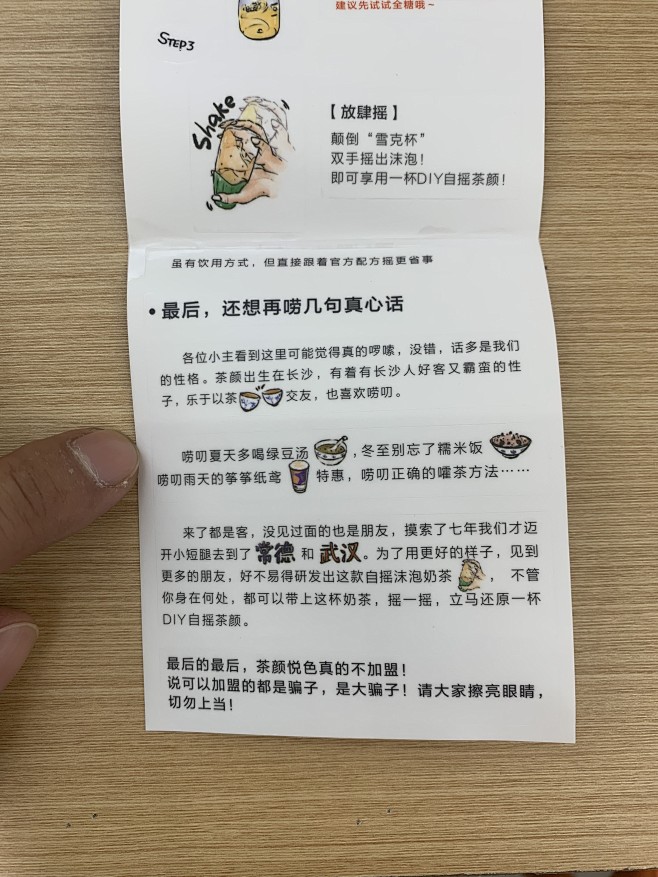 建议先试试全糖哦~
STEP3
Shake
【放肆摇】
颠倒“雪克杯”
双手摇出沫泡！
即可享用一杯DIY自摇茶颜！
虽有饮用方式，但直接跟着官方配方摇更省事
•最后，还想再唠几句真心话
各位小主看到这里可能觉得真的啰嗦，没错，话多是我们
的性格。茶颜出生在长沙，有着有长沙人好客又霸蛮的性
子，乐于以茶交友，也喜欢唠叨。
唠叨夏天多喝绿豆汤，冬至别忘了糯米饭
唠叨雨天的筝筝纸鸢特惠，唠叨正确的嚯茶方法……
来了都是客，没见过面的也是朋友，摸索了七年我们才迈
开小短腿去到了常德和武汉。为了用更好的样子，见到
更多的朋友，好不易得研发出这款自摇沫泡奶茶，不管
你身在何处，都可以带上这杯奶茶，摇一摇，立马还原一杯
DIY自摇茶颜。
最后的最后，茶颜悦色真的不加盟！
说可以加盟的都是骗子，是大骗子！请大家擦亮眼睛，
切勿上当！